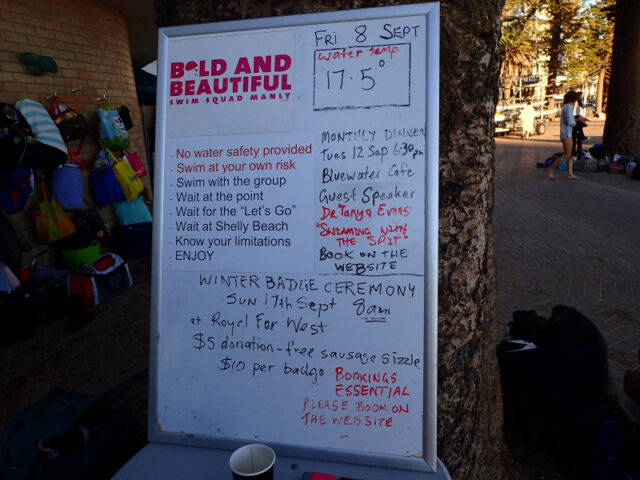 BOLD AND
BEAUTIFUL
SWIM SQUAD MANLY
FRI 8 SEPT
Water temp.
17.5°
- No water safety provided
- Swim at your own risk
- Swim with the group
- Wait at the point
- Wait for the "Let's Go"
- Wait at Shelly Beach
- Know your limitations
- ENJOY
MONTHLY DINNER
Tues 12 Sep 6:30pm
Bluewater Cafe
Guest Speaker
Dr Tanya Evans
"SWIMMING WITH
THE SPIT"
BOOK ON THE
WEBSITE
WINTER BADGE CEREMONY
SUN 17th Sept 8am
at Royal Far West
$5 donation-free sausage sizzle
$10 per badge
BOOKINGS
ESSENTIAL
PLEASE BOOK ON
THE WEBSITE